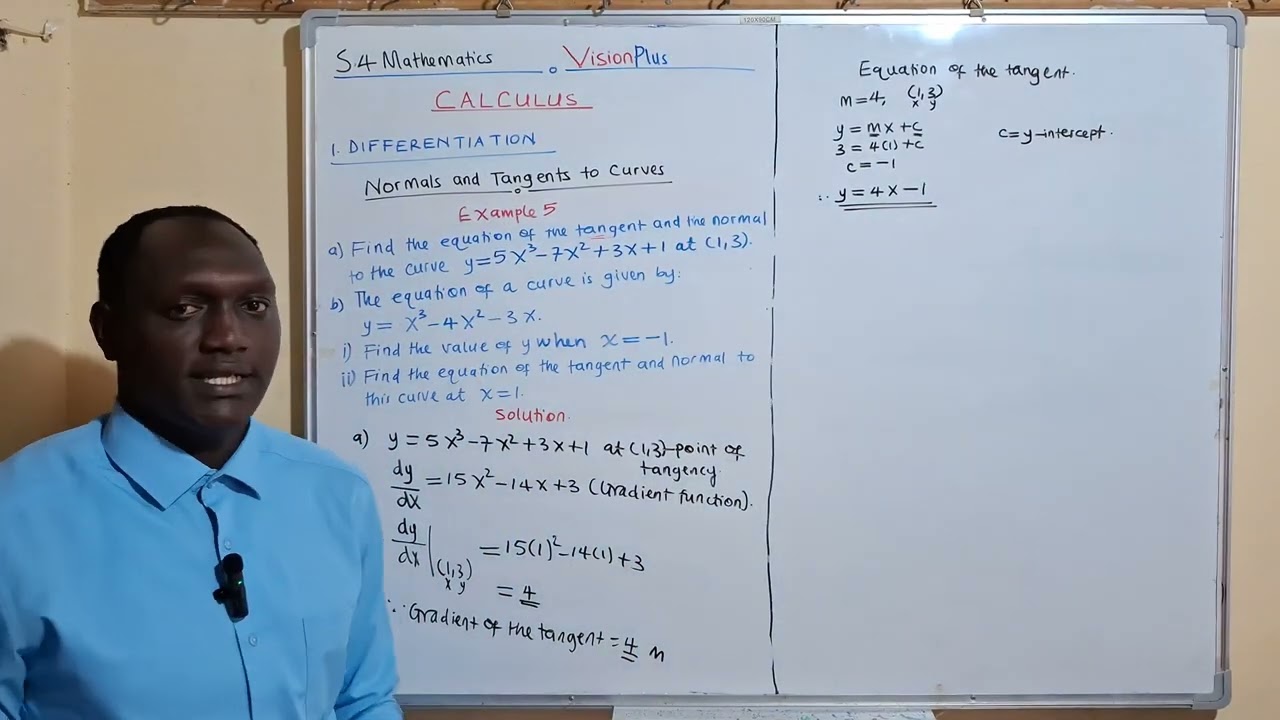 120X90CM
S4 Mathematics VisionPlus
CALCULUS
1. DIFFERENTIATION
Normals and Tangents to Curves
Example 5
a) Find the equation of the tangent and the normal
to the curve y=5x³-7x²+3x+1 at (1,3).
b) The equation of a curve is given by:
y= x³-4x²-3x.
i) Find the value of y when x=-1.
ii) Find the equation of the tangent and normal to
this curve at x=1.
Solution.
a) y=5x³-7x²+3x+1 at (1,3)-point of
tangency.
dy/dx =15x²-14x+3 (Gradient function).
dy/dx |(1,3) =15(1)²-14(1)+3
x y
= 4
∴ Gradient of the tangent = 4 m
Equation of the tangent.
m=4, (1,3)
x y
y = mx +c c=y-intercept.
3 = 4(1) +c
c = -1
∴ y = 4x-1